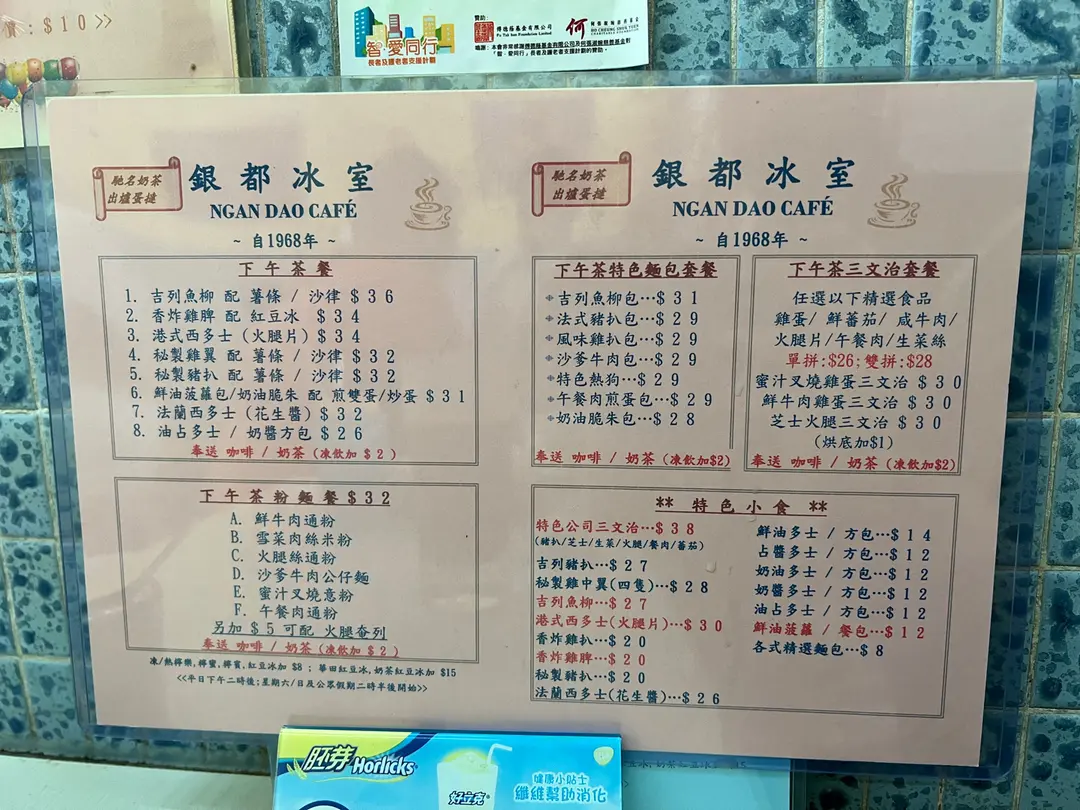 賣:$10)
贊助:
傅德蔭基金有限公司
Fu Tak Iam Foundation Limited
何
智·愛同行
長者及護老者支援計劃
馳名奶茶
出爐蛋撻
銀都冰室
NGAN DAO CAFÉ
~ 自1968年 ~
下午茶餐
1. 吉列魚柳 配 薯條 / 沙律 $36
2. 香炸雞脾 配 紅豆冰 $34
3. 港式西多士(火腿片)$34
4. 秘製雞翼 配 薯條 / 沙律 $32
5. 秘製豬扒 配 薯條 / 沙律 $32
6. 鮮油菠蘿包/奶油脆朱 配 煎雙蛋/炒蛋 $31
7. 法蘭西多士(花生醬)$32
8. 油占多士 / 奶醬方包 $26
奉送 咖啡 / 奶茶 (凍飲加$2)
下午茶粉麵餐$32
A. 鮮牛肉通粉
B. 雪菜肉絲米粉
C. 火腿絲通粉
D. 沙爹牛肉公仔麵
E. 蜜汁叉燒意粉
F. 午餐肉通粉
另加$5可配 火腿奄列
奉送 咖啡 / 奶茶 (凍飲加$2)
凍/熱檸樂,檸蜜,檸賓,紅豆冰加 $8 ; 華田紅豆冰,奶茶紅豆冰加 $15
<<平日下午二時後;星期六/日及公眾假期二時半後開始>>
馳名奶茶
出爐蛋撻
銀都冰室
NGAN DAO CAFÉ
~ 自1968年 ~
下午茶特色麵包套餐
吉列魚柳包…$31
法式豬扒包…$29
風味雞扒包…$29
沙爹牛肉包…$29
特色熱狗…$29
午餐肉煎蛋包…$29
奶油脆朱包…$28
奉送 咖啡 / 奶茶 (凍飲加$2)
下午茶三文治套餐
任選以下精選食品
雞蛋/ 鮮蕃茄/ 咸牛肉/
火腿片/午餐肉/生菜絲
單拼:$26;雙拼:$28
蜜汁叉燒雞蛋三文治 $30
鮮牛肉雞蛋三文治 $30
芝士火腿三文治 $30
(烘底加$1)
奉送 咖啡 / 奶茶 (凍飲加$2)
** 特色小食 **
特色公司三文治…$38
(豬扒/芝士/生菜/火腿/餐肉/蕃茄)
吉列豬扒…$27
秘製雞中翼(四隻)…$28
吉列魚柳…$27
港式西多士(火腿片)…$30
香炸雞扒…$20
香炸雞脾…$20
秘製豬扒…$20
法蘭西多士(花生醬)…$26
鮮油多士 / 方包…$14
占醬多士 / 方包…$12
奶油多士 / 方包…$12
奶醬多士 / 方包…$12
油占多士 / 方包…$12
鮮油菠蘿 / 餐包…$12
各式精選麵包…$8
胚芽 Horlicks
好立克
健康小貼士
纖維幫助消化